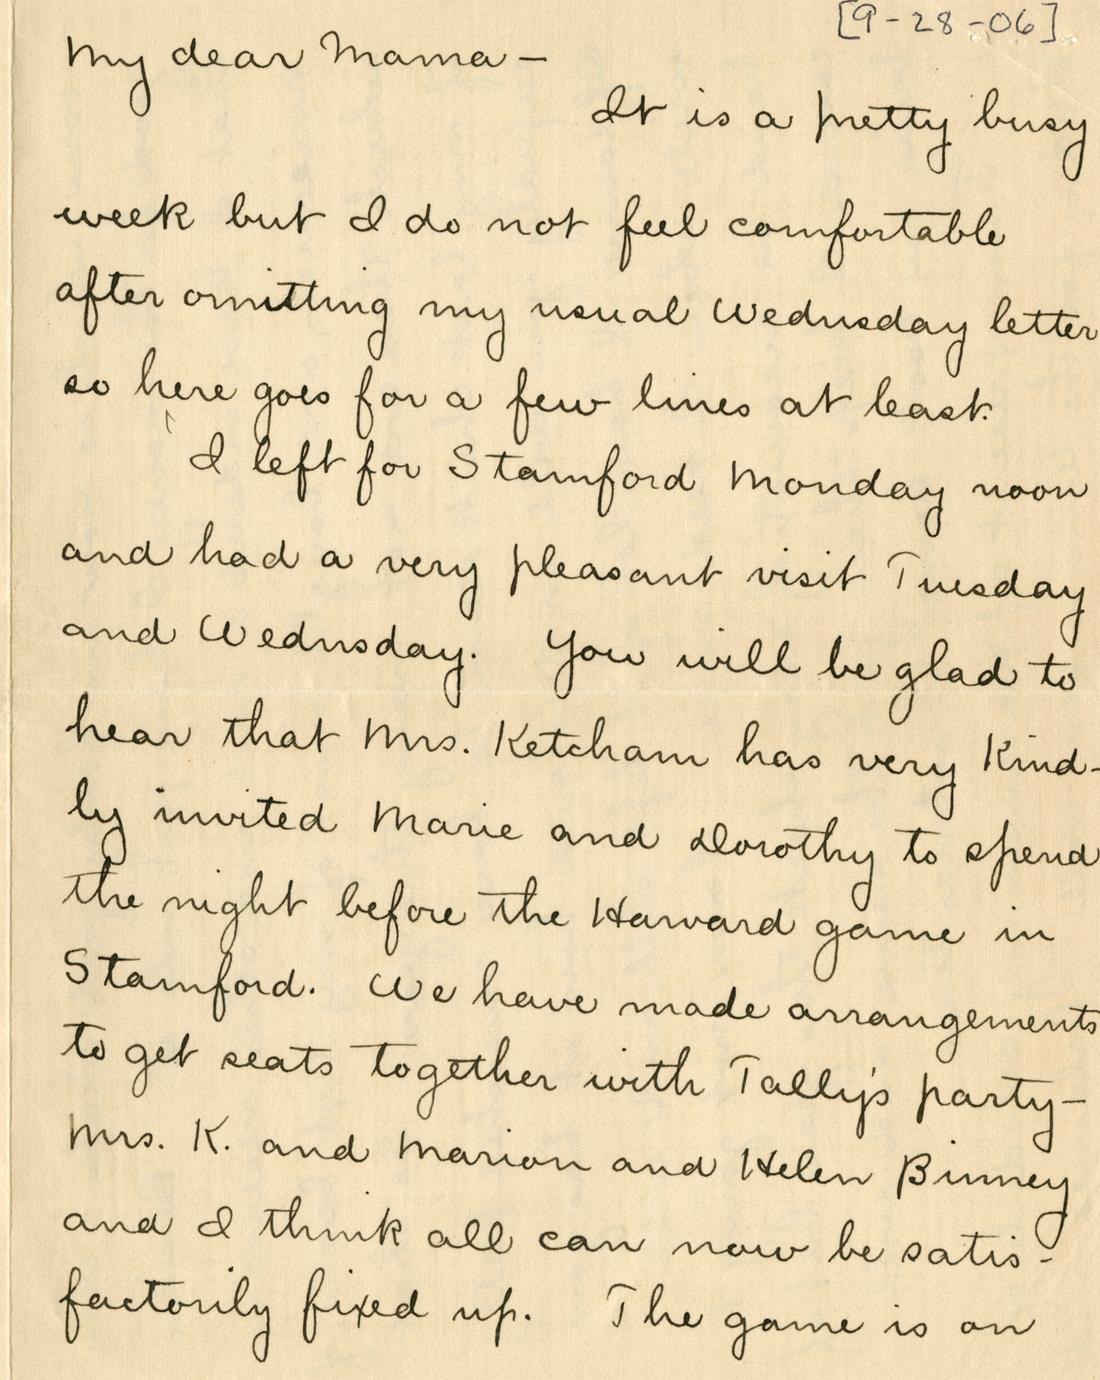 [9-28-06]
My dear Mama —
It is a pretty busy
week but I do not feel comfortable
after omitting my usual Wednesday letter
so here goes for a few lines at least.
I left for Stamford Monday noon
and had a very pleasant visit Tuesday
and Wednesday. You will be glad to
hear that Mrs. Ketcham has very kind-
ly invited Marie and Dorothy to spend
the night before the Harvard game in
Stamford. We have made arrangements
to get seats together with Tally's party —
Mrs. K. and Marion and Helen Binney
and I think all can now be satis-
factorily fixed up. The game is on